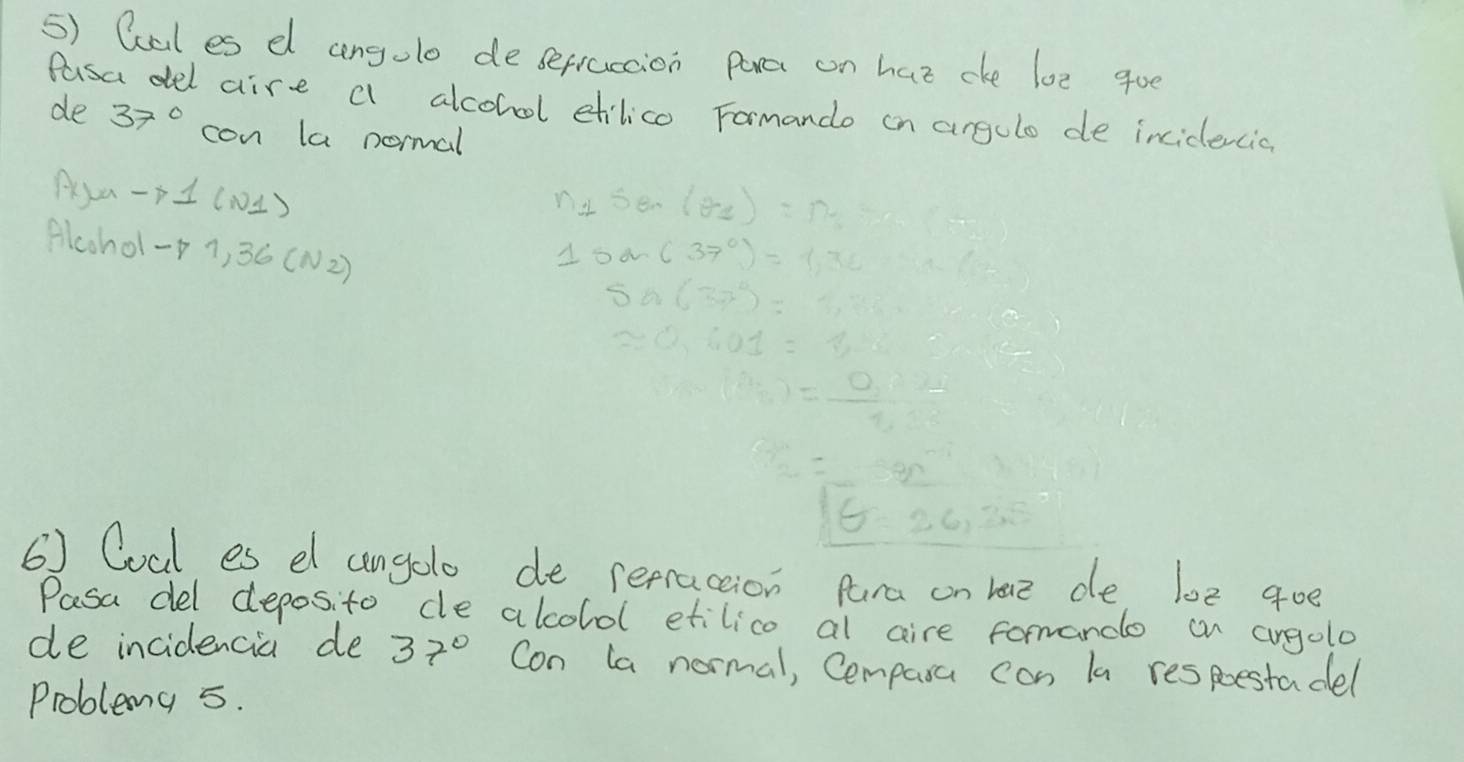 5) Cual es el angulo de refracción para un haz de luz que
Pasa del aire a alcohol etilico Formando un angulo de incidencia
de 37° con la normal
Agua → 1 (N1)
Alcohol → 1,36 (N2)
n1 sen (θ1) = n
1 sen (37°) = 1,36
sen (37°) =
≈ 0,601 =
θ = 26,25°
6) Cual es el angulo de refraccion Para un haz de luz que
Pasa del deposito de alcohol etilico al aire formando un angulo
de incidencia de 37° Con la normal, Compara con la respuesta del
Problema 5.